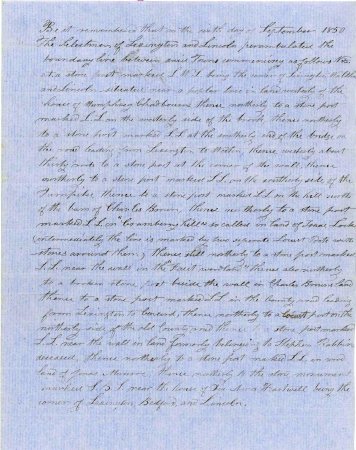 Be it remembered that on the day of September 1850
The Selectmen of Lexington and Lincoln perambulated the
boundary line between said Towns commencing as follows Viz
at a stone post marked L W L being the corner of Lexington Waltham
and Lincoln situated near a poplar tree in land westerly of the
house of Humphrey Chadbourn thence northerly to a stone post
marked L L on the westerly side of the brook thence northerly
to a stone post marked L L at the southerly end of the bridge on
the road leading from Lexington to Weston, thence westerly about
thirty rods to a stone post at the corner of the wall, thence
northerly to a stone post marked L L on the southerly side of the
Turnpike thence to a stone post marked L L in the wall north
of the barn of Charles Brown, thence northerly to a stone post
marked L L on "Cranberry Hill" so called in land of Isaac Locke
intermediately the line is marked by two separate Posts with
stones around them, thence still northerly to a stone post marked
L L near the wall in the thence also northerly
to a broken stone post beside the wall in Charles Browns land
thence to a stone post marked L L on the County road leading
from Lexington to Concord, thence northerly to a post on the
northerly side of the old County road thence to a stone post marked
L L near the wall in land formerly belonging to Stephen
deceased, thence northerly to a stone post marked L L in wood
land of Jonas Munroe, thence northerly to the stone monument
marked L B L near the house of being the
corner of Lexington Bedford and Lincoln.